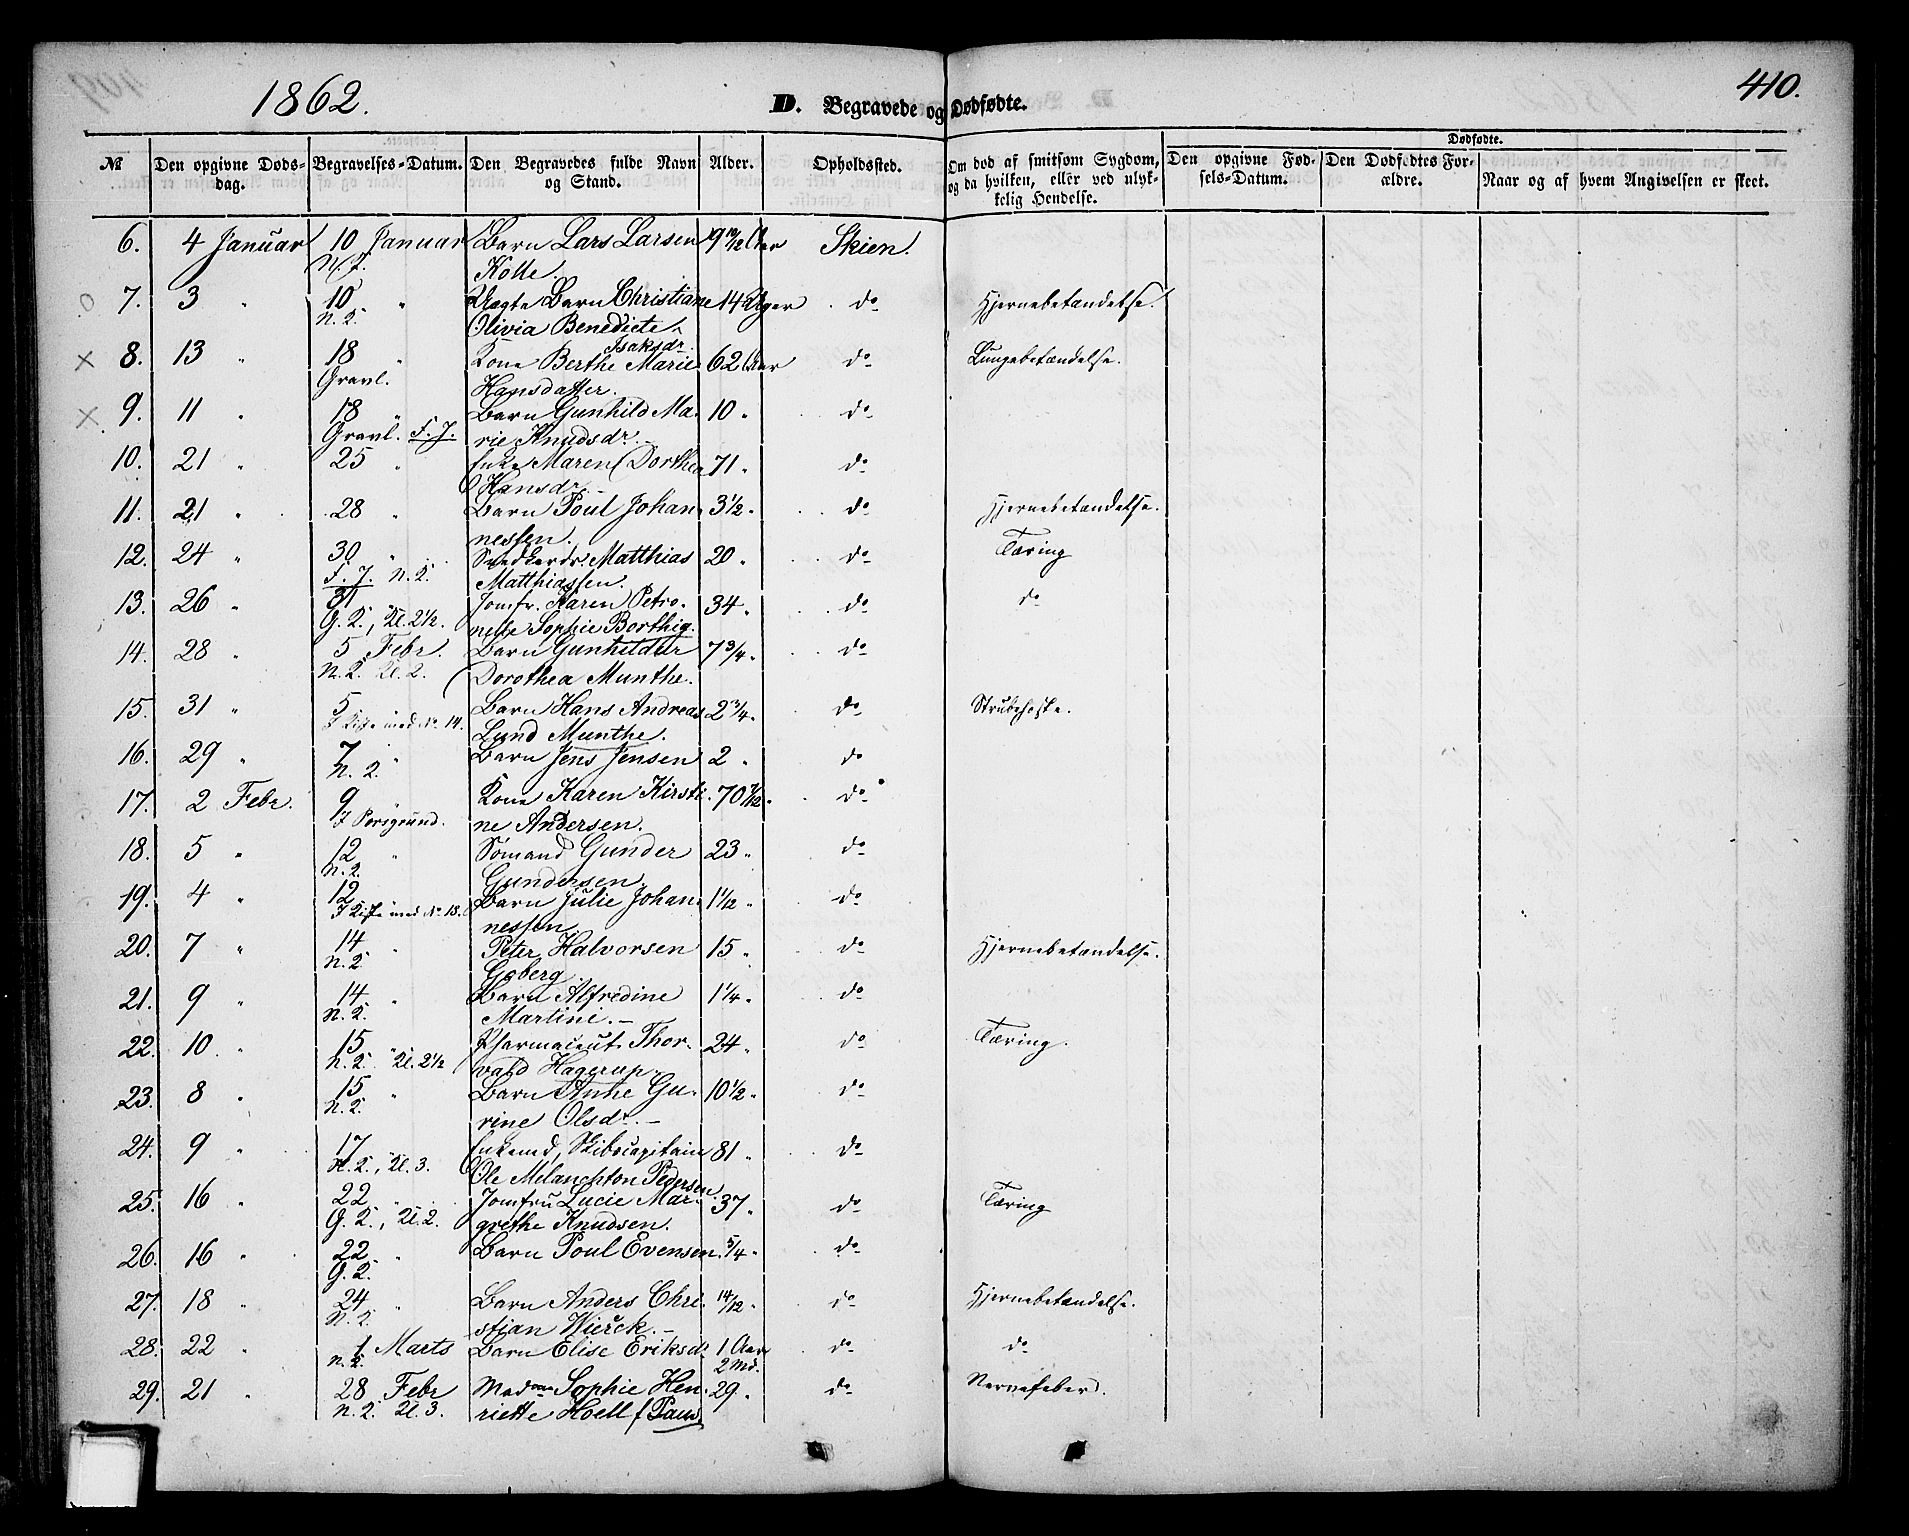 1862.
D. Begravede og Dødfødte.
410.
Dødfødte.
№ Den opgivne Døds-dag. Begravelses-Datum. Den Begravedes fulde Navn og Stand. Alder. Opholdssted. Om død af smitsom Sygdom, og da hvilken, eller ved ulyk-kelig Hendelse. Den opgivne Fød-sels-Datum. Den Dødfødtes For-ældre. Naar og af hvem Angivelsen er skeet.
6. 4 Januar 10 Januar Barn Lars Larsen 9 10/12 Aar Skien.
N. K. Kolle.
7. 3 " 10 " Uægte Barn Christiane 14 Uger do Hjernebetændelse.
N. K. Olivia Benedicte
Isaksdr.
8. 13 " 18 " Kone Berthe Marie 62 Aar do Lungebetændelse.
Gravl. Hansdatter.
9. 11 " 18 " Barn Gunhild Ma- 10 " do
Gravl. F. J. rie Knudsdr.
10. 21 " 25 " Enke Maren Dorthea 71 " do
Hansdr.
11. 21 " 28 " Barn Poul Johan- 3 1/2 " do Hjernebetændelse.
nessen.
12. 24 " 30 " Snedkerdr. Matthias 20 " do Tæring
F. J. N. K. Matthiassen.
13. 26 " 31 Jomfr. Karen Petro- 34 " do do
G. K., Kl. 2 1/2. nelle Sophie Borthig.
14. 28 " 5 Febr. Barn Gunhilder 7 3/4 " do
N. K. Kl. 2. Dorothea Munthe.
15. 31 " 5 Barn Hans Andreas 2 3/4 " do Strubehoste.
I Kiste med No 14. Lund Munthe.
16. 29 " 7 " Barn Jens Jensen 2 " do
N. K.
17. 2 Febr. 9 Kone Karen Kirsti- 70 7/12 " do
I Porsgrund. ne Andersen.
18. 5 " 12 " Sømand Gunder 23 " do
N. K. Gundersen.
19. 4 " 12 Barn Julie Johan- 1 1/2 " do
I Kiste med No 18. nessen
20. 7 " 14 " Peter Halvorsen 15 " do Hjernebetændelse.
N. K. Goberg.
21. 9 " 14 " Barn Alfredine 1 1/4 " do
N. K. Martini.
22. 10 " 15 " Pharmaceut Thor- 24 " do Tæring.
N. K. Kl. 2 1/2 vald Hagerup.
23. 8 " 15 " Barn Anne Gu- 10 1/2 " do
N. K. rine Olsdr.
24. 9 " 17 Enkemd, Skibscapitain 81 " do
N. K., Kl. 3. Ole Melanchton Pedersen.
25. 16 " 22 " Jomfru Lucie Mar- 37 " do Tæring
G. K., Kl. 2. grethe Knudsen.
26. 16 " 22 " Barn Poul Evensen 5/4 " do
G. K.
27. 18 " 24 " Barn Anders Chri- 14/12 " do Hjernebetændelse.
N. K. stian Wierck.
28. 22 " 1 Marts Barn Elise Eriksdr 1 Aar do do
N. K. 2 Md.
29. 21 " 28 Febr Madame Sophie Hen- 29 " do Nervefeber.
N. K. Kl. 3. riette Hoell f. Paus